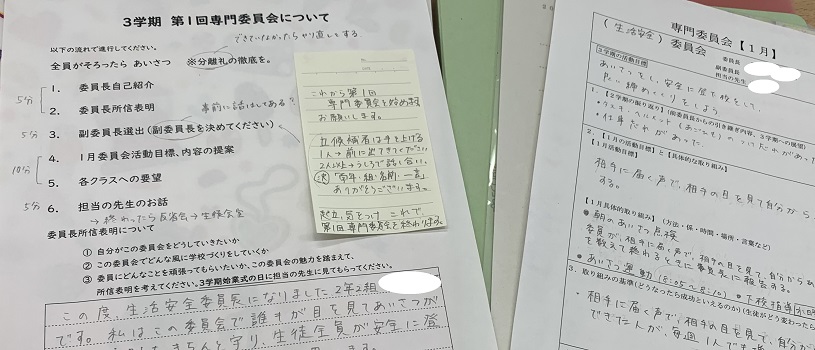 3学期 第1回専門委員会について
できていなかったらやり直しとする
以下の流れで進行してください。
全員がそろったら あいさつ ※分離礼の徹底を。
5分
1. 委員長自己紹介
2. 委員長所信表明
事前に話はしてある?
5分
3. 副委員長選出(副委員長を決めてください)
10分
4. 1月委員会活動目標、内容の提案
5. 各クラスへの要望
5分
6. 担当の先生のお話
→終わったら反省会→生検会室
委員長所信表明について
① 自分がこの委員会をどうしていきたいか
② この委員会でどんな風に学校づくりをしていくか
③ 委員にどんなことを頑張ってもらいたいか、この委員会の魅力を踏まえて、
所信表明を考えてください。3学期始業式の日に担当の先生に見てもらってください。
この度、生活安全委員長になりました2年2組
です。私はこの委員会で誰もが目を見てあいさつが
きちんと守り、生徒全員が安全に登
ます。
これから第1回
専門委員会を始めます
お願いします。
立候補者は手を上げる
1人→前に出てきてください
2人以上→うしろで話し合い。
決 「学年・組・名前・一言」
ありがとうございます。
起立、気をつけ これで
第1回専門委員会を終わります。
専門委員会【1月】
(生活安全)委員会
委員長
副委員長
担当の先生
3学期の活動目標
あいさつをし、安全に登下校をして、
良い締めくくりをしよう
1.【2学期の振り返り】(前委員長からの引き継ぎ内容、3学期への展望)
2.【1月の活動目標】と【具体的な取り組み】
【1月活動目標】
相手に届く声で、相手の目を見て自分から
する。
【1月具体的取り組み】(方法・係・時間・場所・言葉など)
●朝のあいさつ点検
委員が、相手に届く声で、相手の目を見て、自分から
を数えて終わるときに委員長に報告する。
●あいさつ運動(8:05~8:10)
●下校指導
3. 取り組みの基準(どうなったら成功といえるのか)
・相手に届く声で、相手の目を見て、自分か
できた人が、毎週1人で